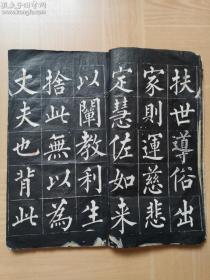 扶世導俗出
家則運慈悲
定慧佐如来
以闡教利生
捨此無以為
丈夫也背此